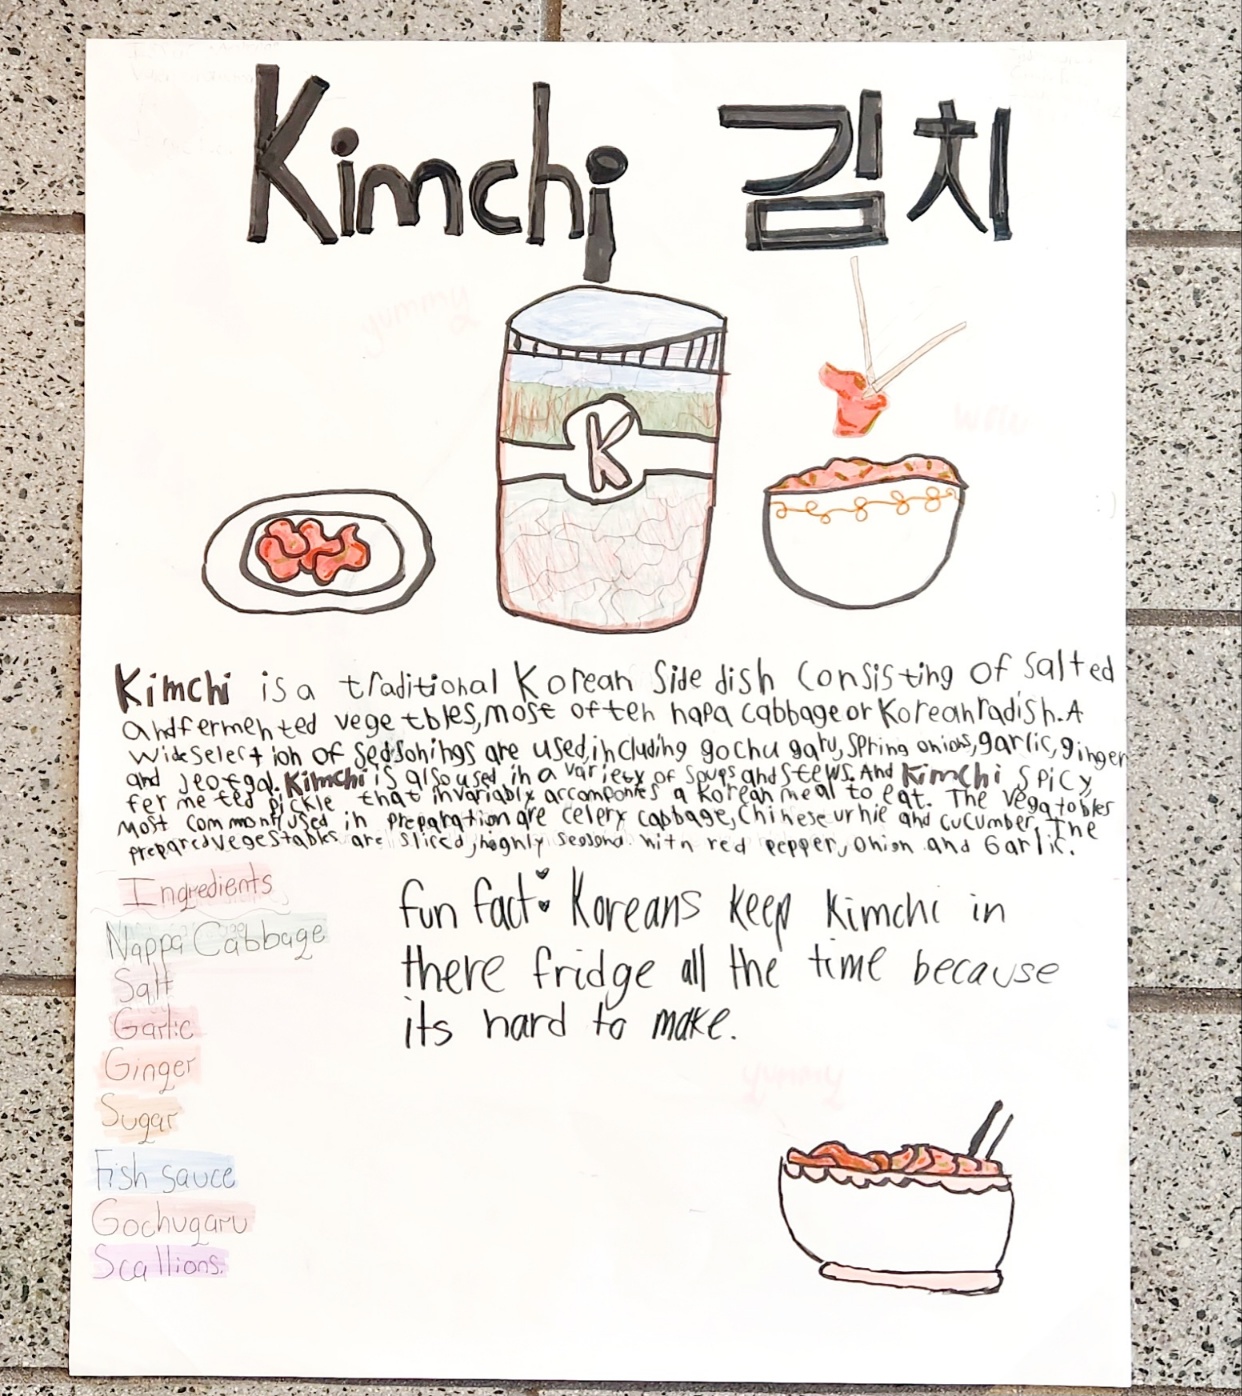 Kimchi 김치
yummy
K
Kimchi is a traditional Korean Side dish Consisting of Salted
andfermented vegetbles, most often napa cabbage or Korean radish. A
Wide Selection of Sedsonings are used, including gochugaru, spring onions, garlic, ginger
and jeotgal. Kimchi is also used in a variety of Soups and Stews. And Kimchi Spicy,
fermeted pickle that invariably accompanies a Korean meal to eat. The vegatobles
Most commonly used in preparation are celery cabbage, Chinese and cucumber. The
vegestables are sliced, with red pepper, onion and Garlic.
Ingredients
Nappa Cabbage
Salt
Garlic
Ginger
Sugar
Fish sauce
Gochugaru
Scallions.
fun fact: Koreans keep Kimchi in
there fridge all the time because
its hard to make.
yummy